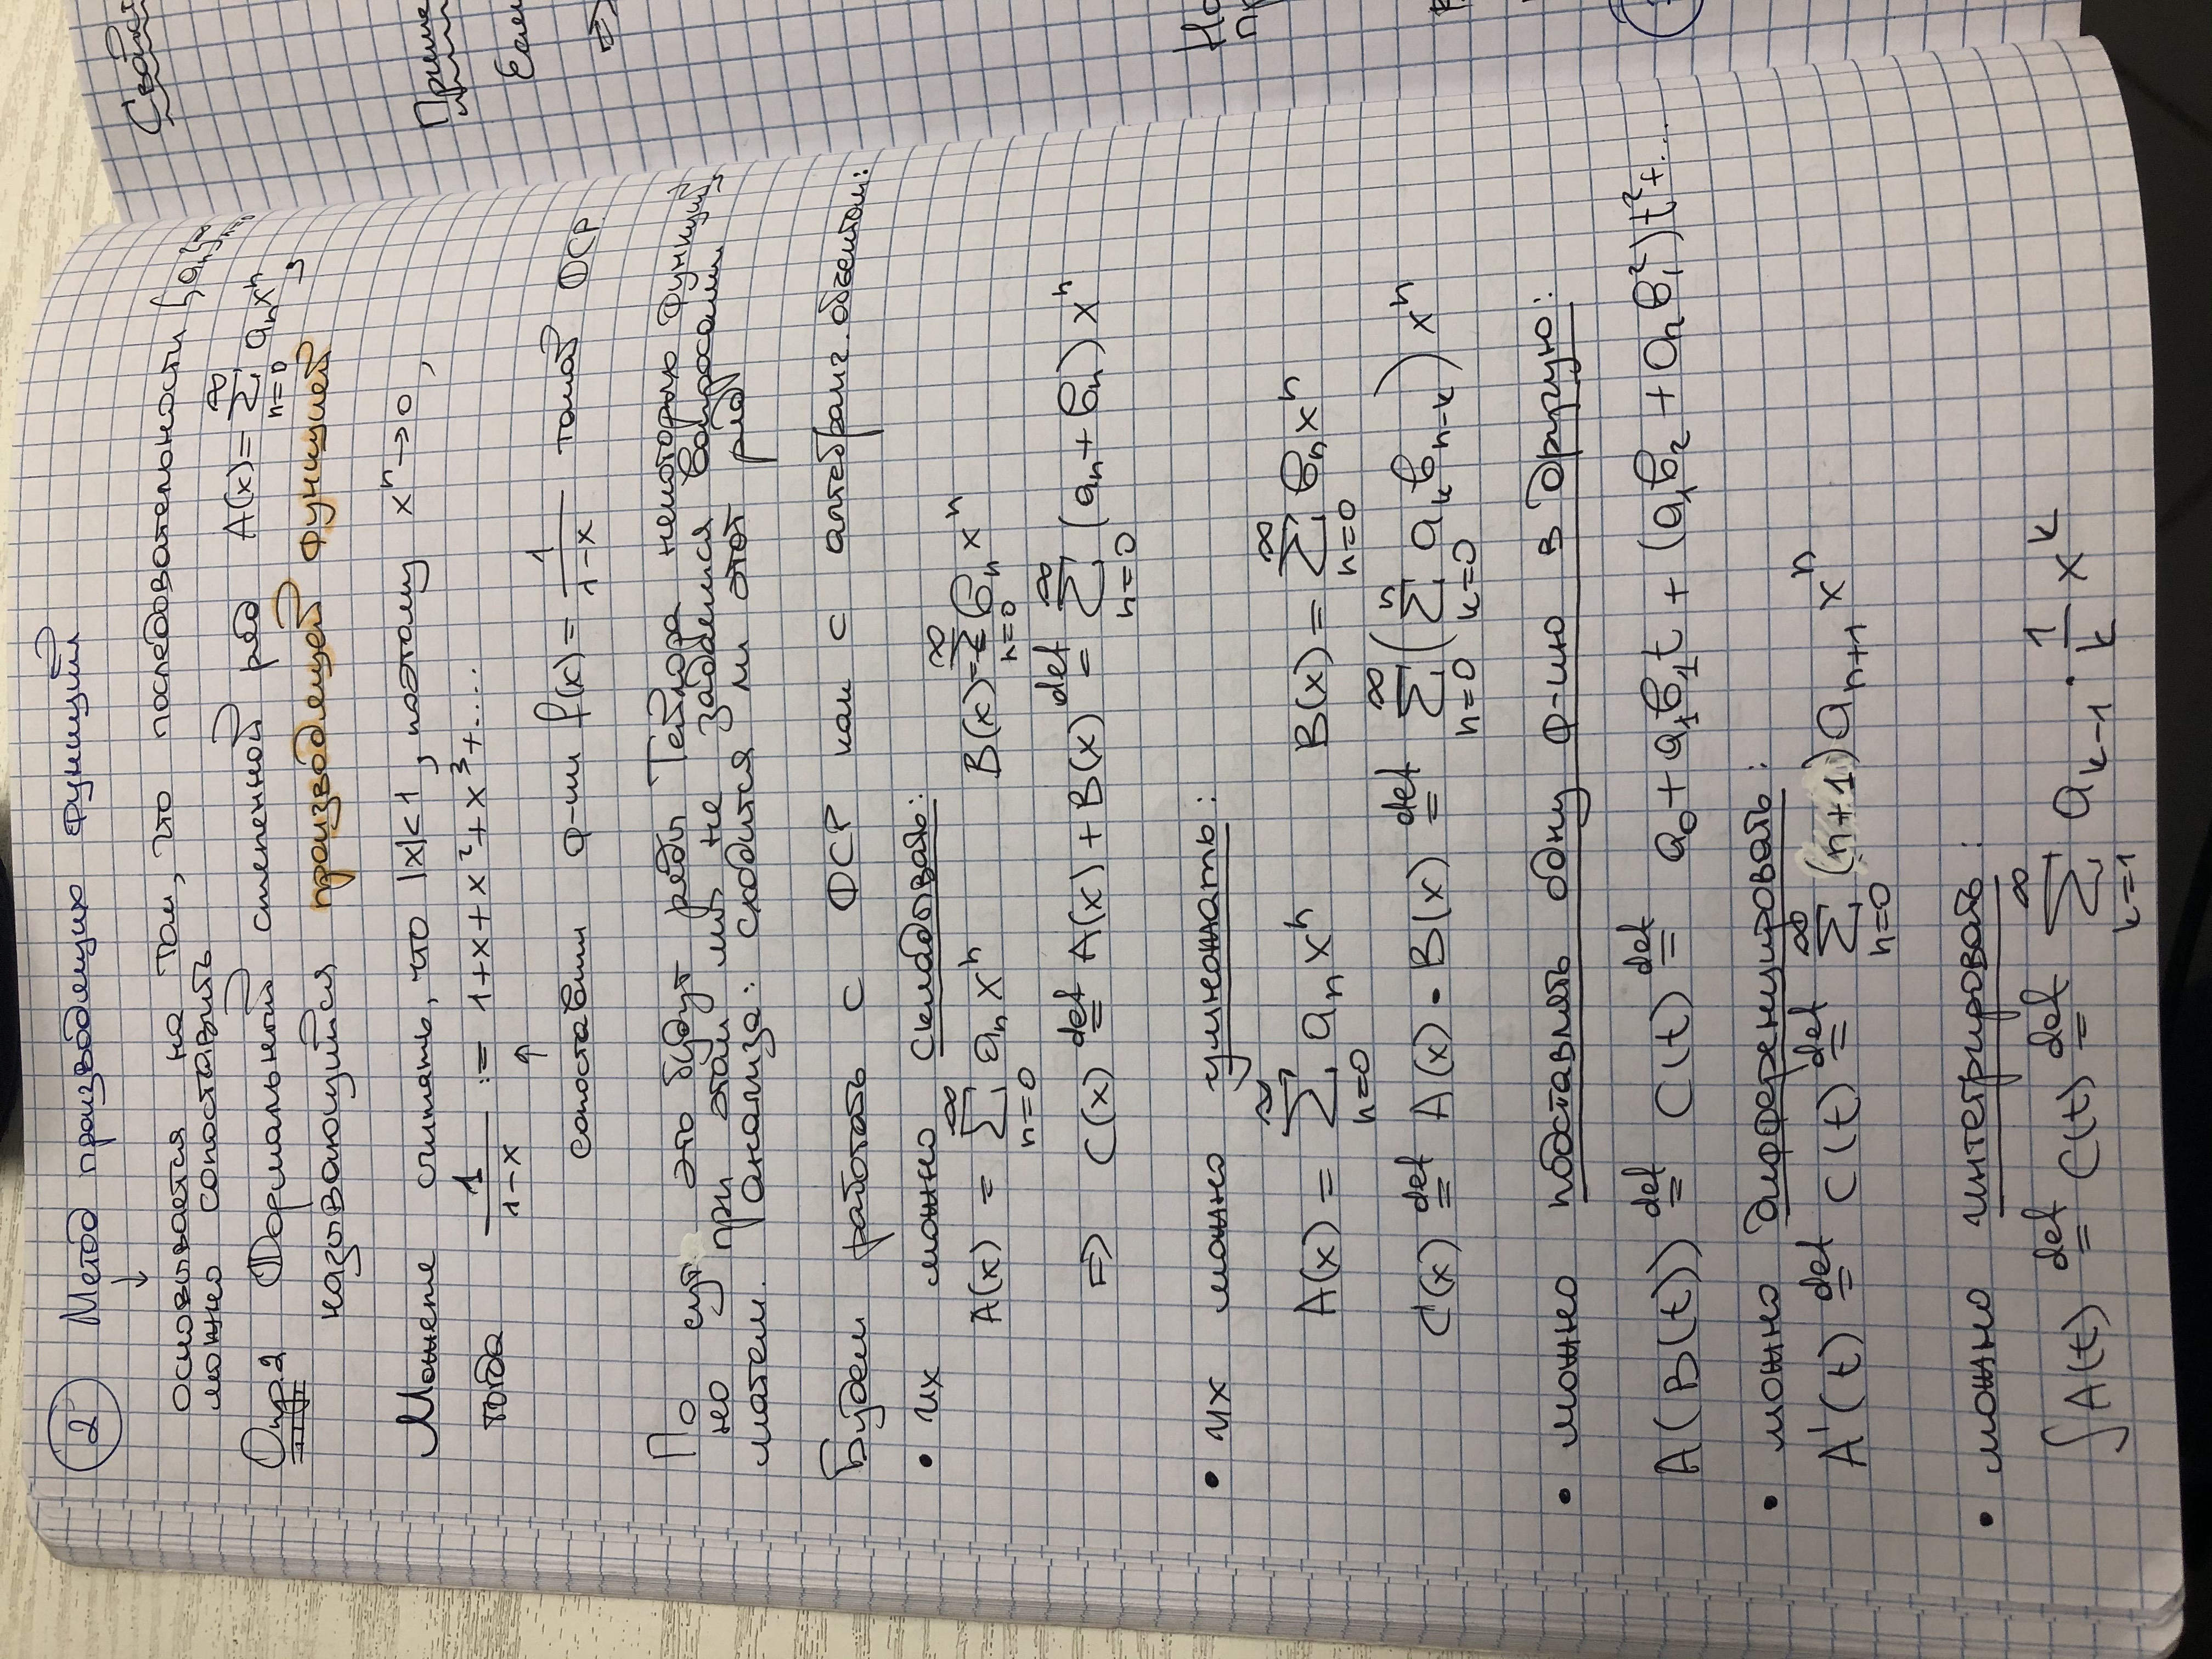 ② Метод производящих функций
↓
основывается на том, что последовательности {aₙ}ₙ₌₀^∞
можно сопоставить
Опр.2 Формальный степенной ряд A(x) = ∑_{n=0}^{∞} aₙxⁿ,
называющийся производящей функцией
Можете считать, что |x|<1, поэтому xⁿ→0,
тогда 1/(1-x) := 1+x+x²+x³+....
↑
сопоставим ф-ии f(x) = 1/(1-x) такой ФСР
По сут это будут ряды Тейлора некоторых функций,
но при этом мы не задаемся вопросами
матем. анализа: сходится ли этот ряд
Будем работать с ФСР как с алгебраич. объектом:
• их можно складывать:
A(x) = ∑_{n=0}^{∞} aₙxⁿ B(x) = ∑_{n=0}^{∞} bₙxⁿ
⇒ C(x) =^{def} A(x) + B(x) =^{def} ∑_{n=0}^{∞} (aₙ+bₙ)xⁿ
• их можно умножать:
A(x) = ∑_{n=0}^{∞} aₙxⁿ B(x) = ∑_{n=0}^{∞} bₙxⁿ
C(x) =^{def} A(x) · B(x) =^{def} ∑_{n=0}^{∞} (∑_{k=0}^{n} a_k b_{n-k}) xⁿ
• можно подставлять одну ф-ию в другую:
A(B(t)) =^{def} C(t) =^{def} a₀ + a₁b₁t + (a₁b₂ + a₂b₁²)t²+...
• можно дифференцировать:
A'(t) =^{def} C(t) =^{def} ∑_{n=0}^{∞} (n+1)a_{n+1} xⁿ
• можно интегрировать:
∫A(t) =^{def} C(t) =^{def} ∑_{k=1}^{∞} a_{k-1} · 1/k x^k
Если
⇒